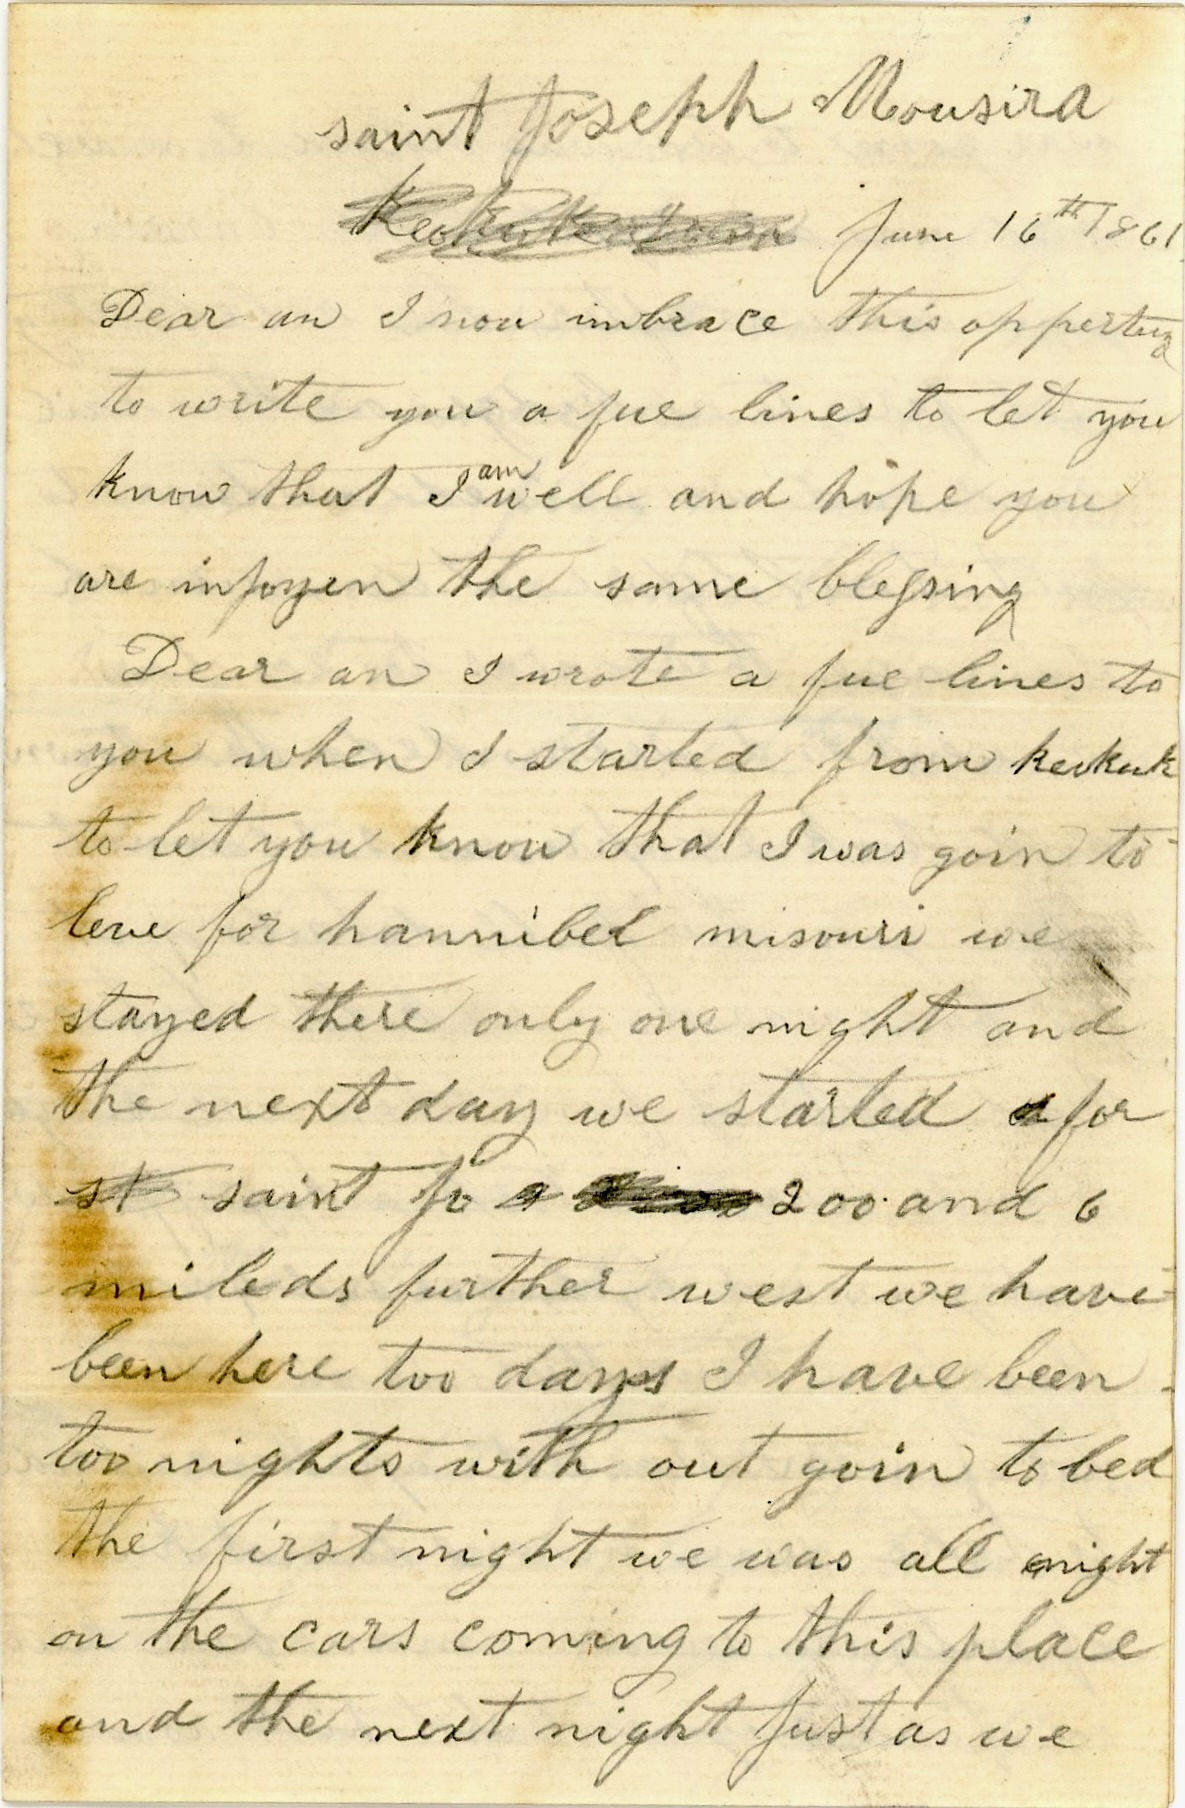 saint Joseph Mousira
Keokuk Iowa June 16th 1861
Dear an I now imbrace this oppertun
to write you a fue lines to let you
know that I am well and hope you
are injoyen the same blessing
Dear an I wrote a fue lines to
you when I started from keokuk
to let you know that I was goin to
leve for hannibel misouri we
stayed there only one night and
the next day we started for
st saint Jo a 200 and 6
mileds further west we have
been here too days I have been
too nights with out goin to bed
the first night we was all night
on the cars coming to this place
and the next night Just as we